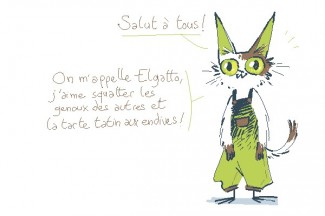 Salut à tous !
On m'appelle Elgatto,
j'aime squatter les
genoux des autres et
la tarte tatin aux endives !